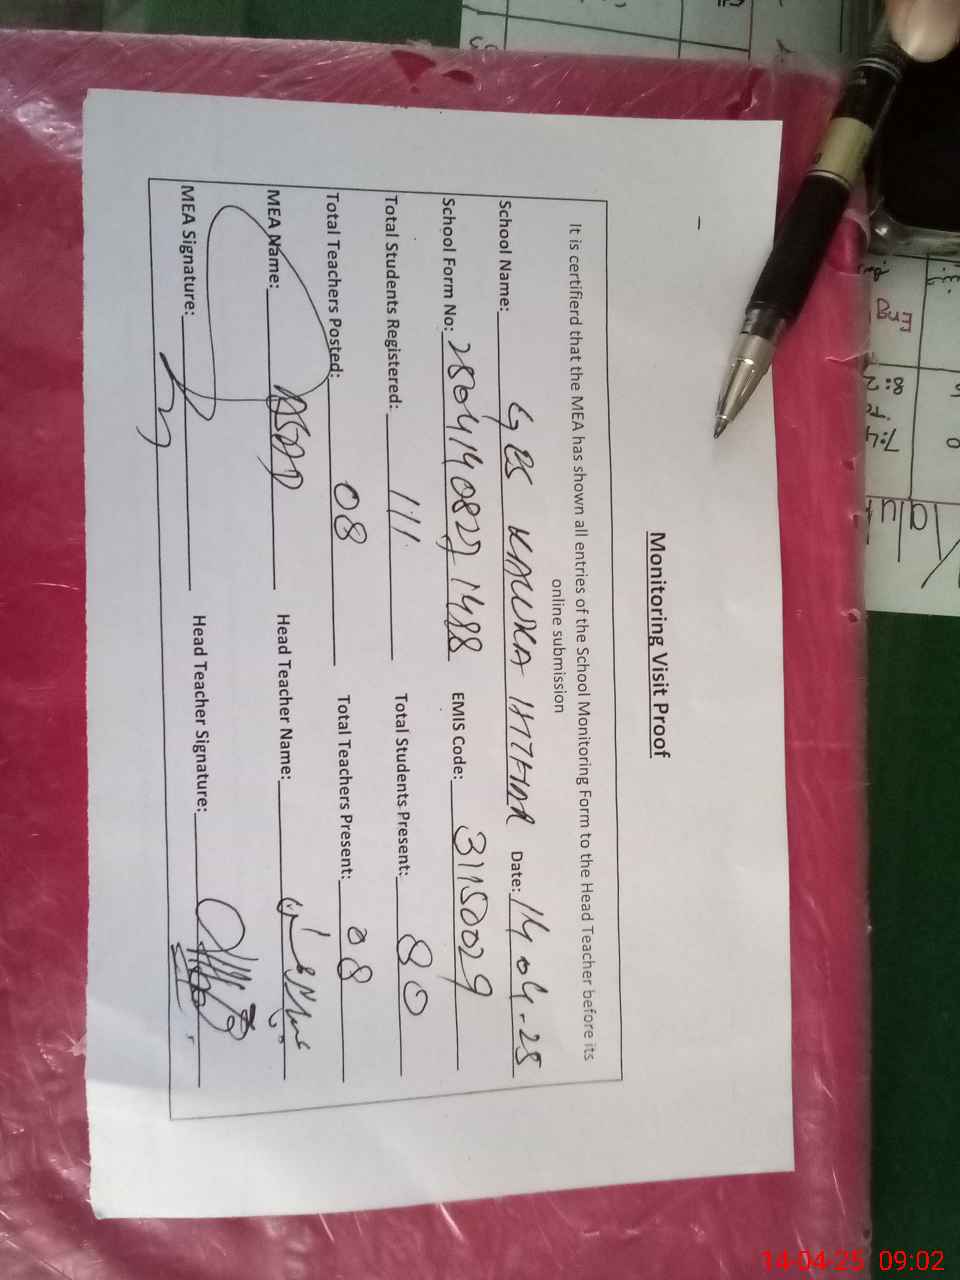 Monitoring Visit Proof
It is certifierd that the MEA has shown all entries of the School Monitoring Form to the Head Teacher before its
online submission
School Name: G ES Date: 14.04.25
School Form No: EMIS Code: 31150029
Total Students Registered: 111 Total Students Present: 80
Total Teachers Posted: 08 Total Teachers Present: 08
MEA Name: ASAD Head Teacher Name:
MEA Signature: Head Teacher Signature:
Eng
14-04-25 09:02